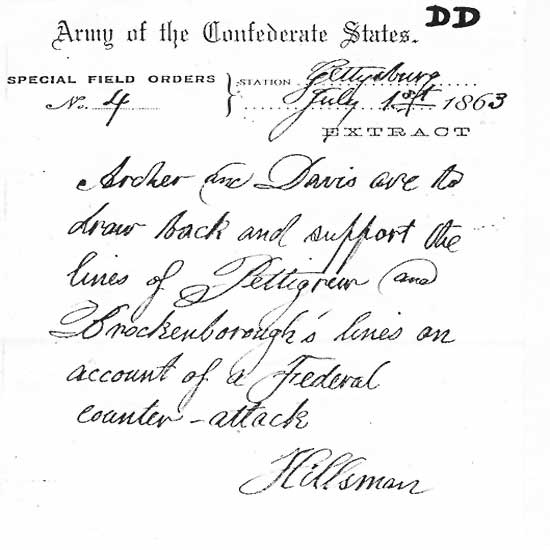 DD
Army of the Confederate States.
SPECIAL FIELD ORDERS
No. 4
STATION Gettysburg
July 1st 1863
EXTRACT
Archer and Davis are to
draw back and support the
lines of Pettigrew and
Brockenborough's lines on
account of a Federal
counter-attack
Hillsman